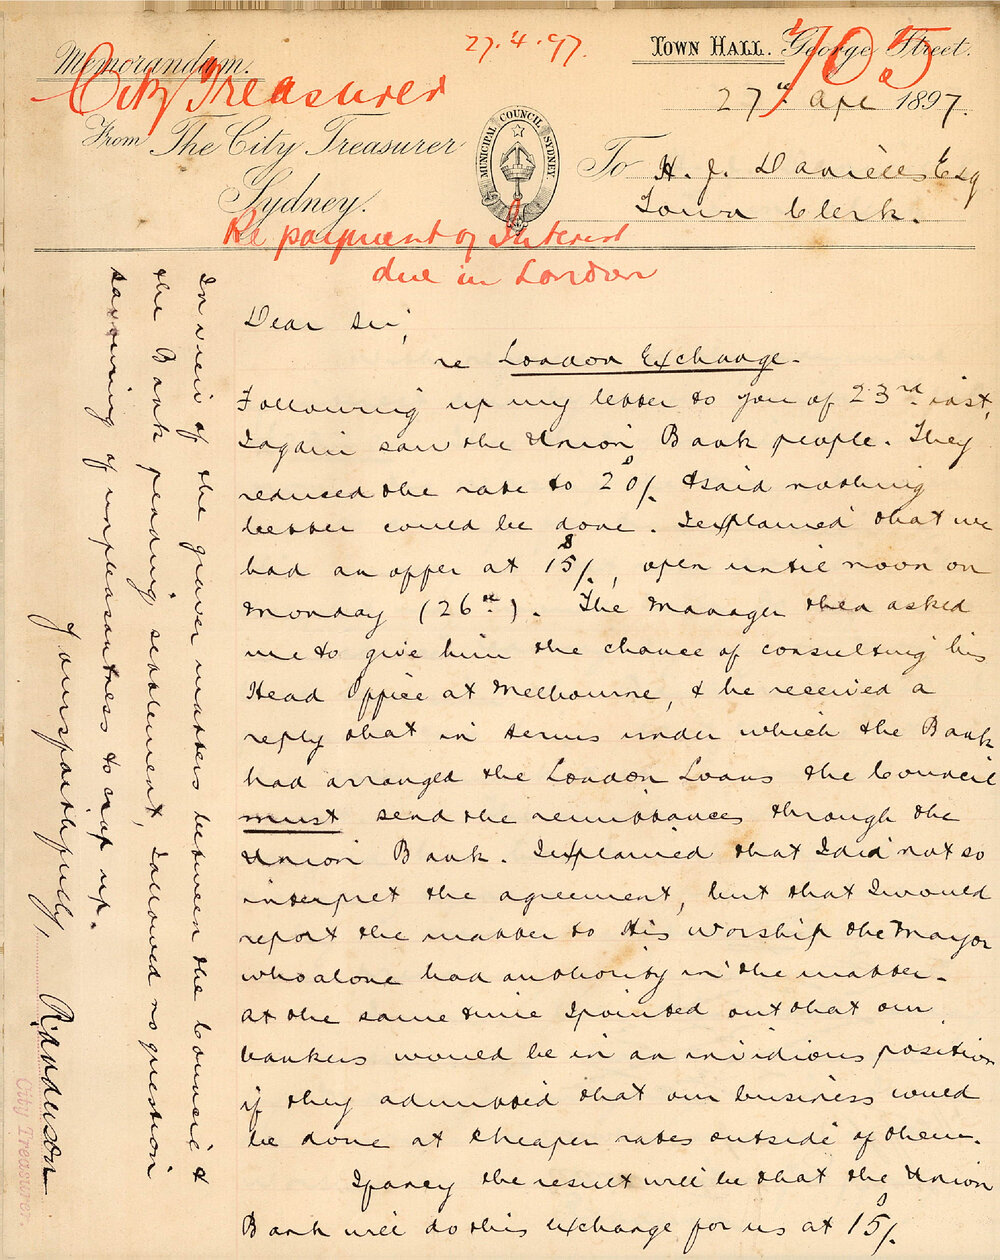 27.4.97.
705
Memorandum.
City Treasurer
From The City Treasurer
Sydney.
MUNICIPAL COUNCIL SYDNEY
TOWN HALL. George Street.
27th Apl 1897.
To H. J. Daniels Esq
Town Clerk.
Re payment of Interest
due in London
Dear Sir,
re London Exchange.
Following up my letter to you of 23rd inst,
I again saw the Union Bank people. They
reduced the rate to 20s/. & said nothing
better could be done. I explained that we
had an offer at 15s/., open until noon on
Monday (26th). The Manager then asked
me to give him the chance of consulting his
Head Office at Melbourne, & he received a
reply that in terms under which the Bank
had arranged the London Loans the Council
must send the remittances through the
Union Bank. I explained that I did not so
interpret the agreement, but that I would
report the matter to His Worship the Mayor
who alone had authority in the matter.
At the same time I pointed out that our
bankers would be in an invidious position
if they admitted that our business would
be done at cheaper rates outside of them.
I fancy the result will be that the Union
Bank will do this exchange for us at 15s/.
In view of the graver matters between the Council &
the Bank pending settlement, I allowed no question
savouring of unpleasantness to crop up.
Yours faithfully,
City Treasurer.